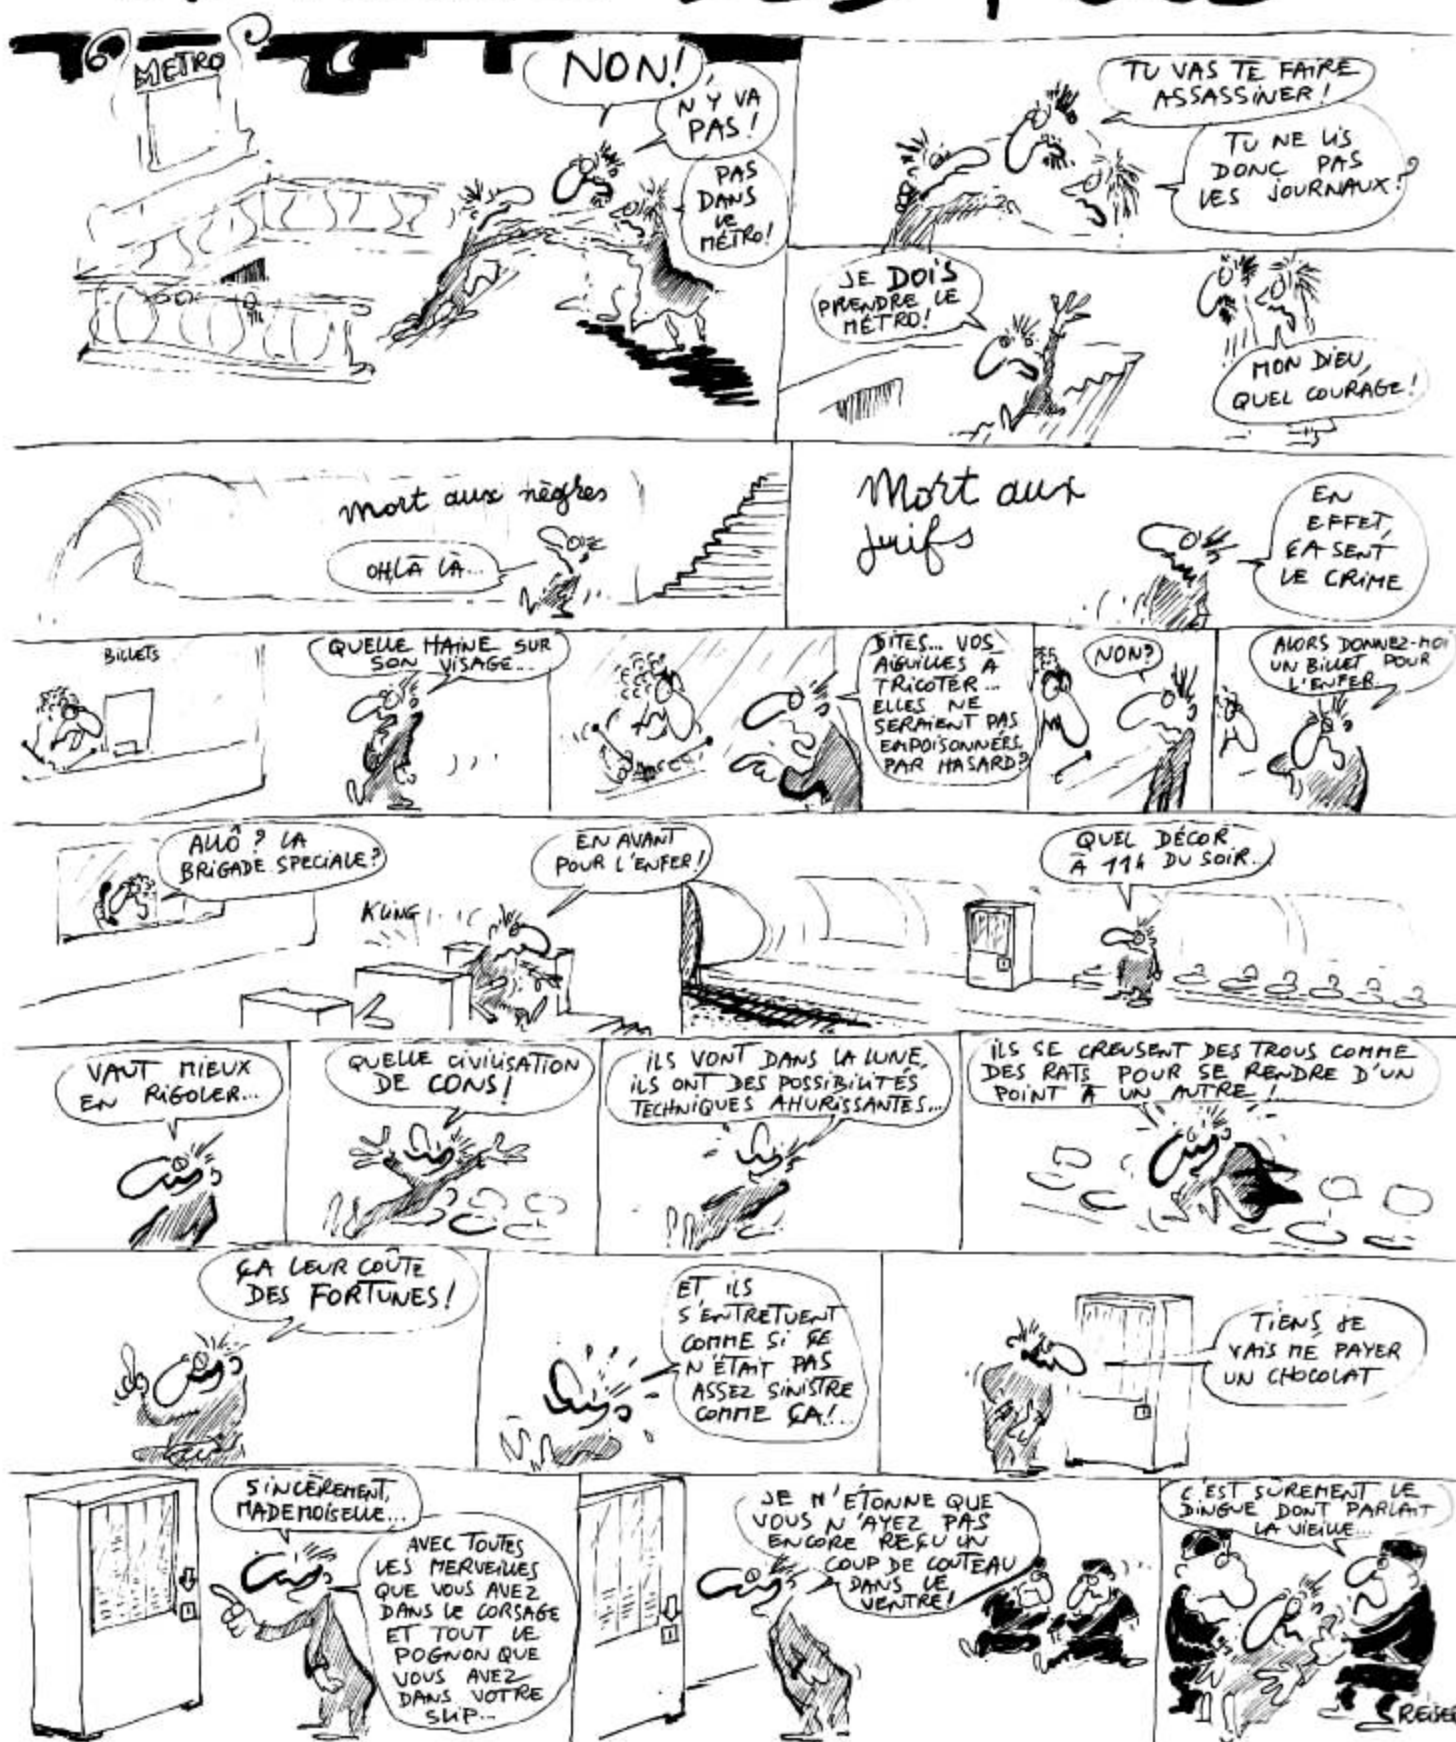 METRO
NON!
N'Y VA
PAS!
PAS
DANS
LE
MÉTRO!
TU VAS TE FAIRE
ASSASSINER!
TU NE LIS
DONC PAS
LES JOURNAUX?
JE DOIS
PRENDRE LE
MÉTRO!
MON DIEU,
QUEL COURAGE!
Mort aux nègres
OH LÀ LÀ...
Mort aux
juifs
EN
EFFET,
ÇA SENT
LE CRIME
BILLETS
QUELLE HAINE SUR
SON VISAGE...
DITES... VOS
AIGUILLES A
TRICOTER...
ELLES NE
SERAIENT PAS
EMPOISONNÉES
PAR HASARD?
NON?
ALORS DONNEZ-MOI
UN BILLET POUR
L'ENFER.
ALLÔ? LA
BRIGADE SPECIALE?
KLING
EN AVANT
POUR L'ENFER!
QUEL DÉCOR
À 11h DU SOIR...
VAUT MIEUX
EN RIGOLER...
QUELLE CIVILISATION
DE CONS!
ILS VONT DANS LA LUNE,
ILS ONT DES POSSIBILITÉS
TECHNIQUES AHURISSANTES...
ILS SE CREUSENT DES TROUS COMME
DES RATS POUR SE RENDRE D'UN
POINT À UN AUTRE!...
ÇA LEUR COÛTE
DES FORTUNES!
ET ILS
S'ENTRETUENT
COMME SI ÇE
N'ÉTAIT PAS
ASSEZ SINISTRE
COMME ÇA!..
TIENS JE
VAIS ME PAYER
UN CHOCOLAT
SINCÈREMENT,
MADEMOISELLE...
AVEC TOUTES
LES MERVEILLES
QUE VOUS AVEZ
DANS LE CORSAGE
ET TOUT LE
POGNON QUE
VOUS AVEZ
DANS VOTRE
SLIP...
JE M'ÉTONNE QUE
VOUS N'AYEZ PAS
ENCORE REÇU UN
COUP DE COUTEAU
DANS LE
VENTRE!
C'EST SÛREMENT LE
DINGUE DONT PARLAIT
LA VIEILLE...
REISER